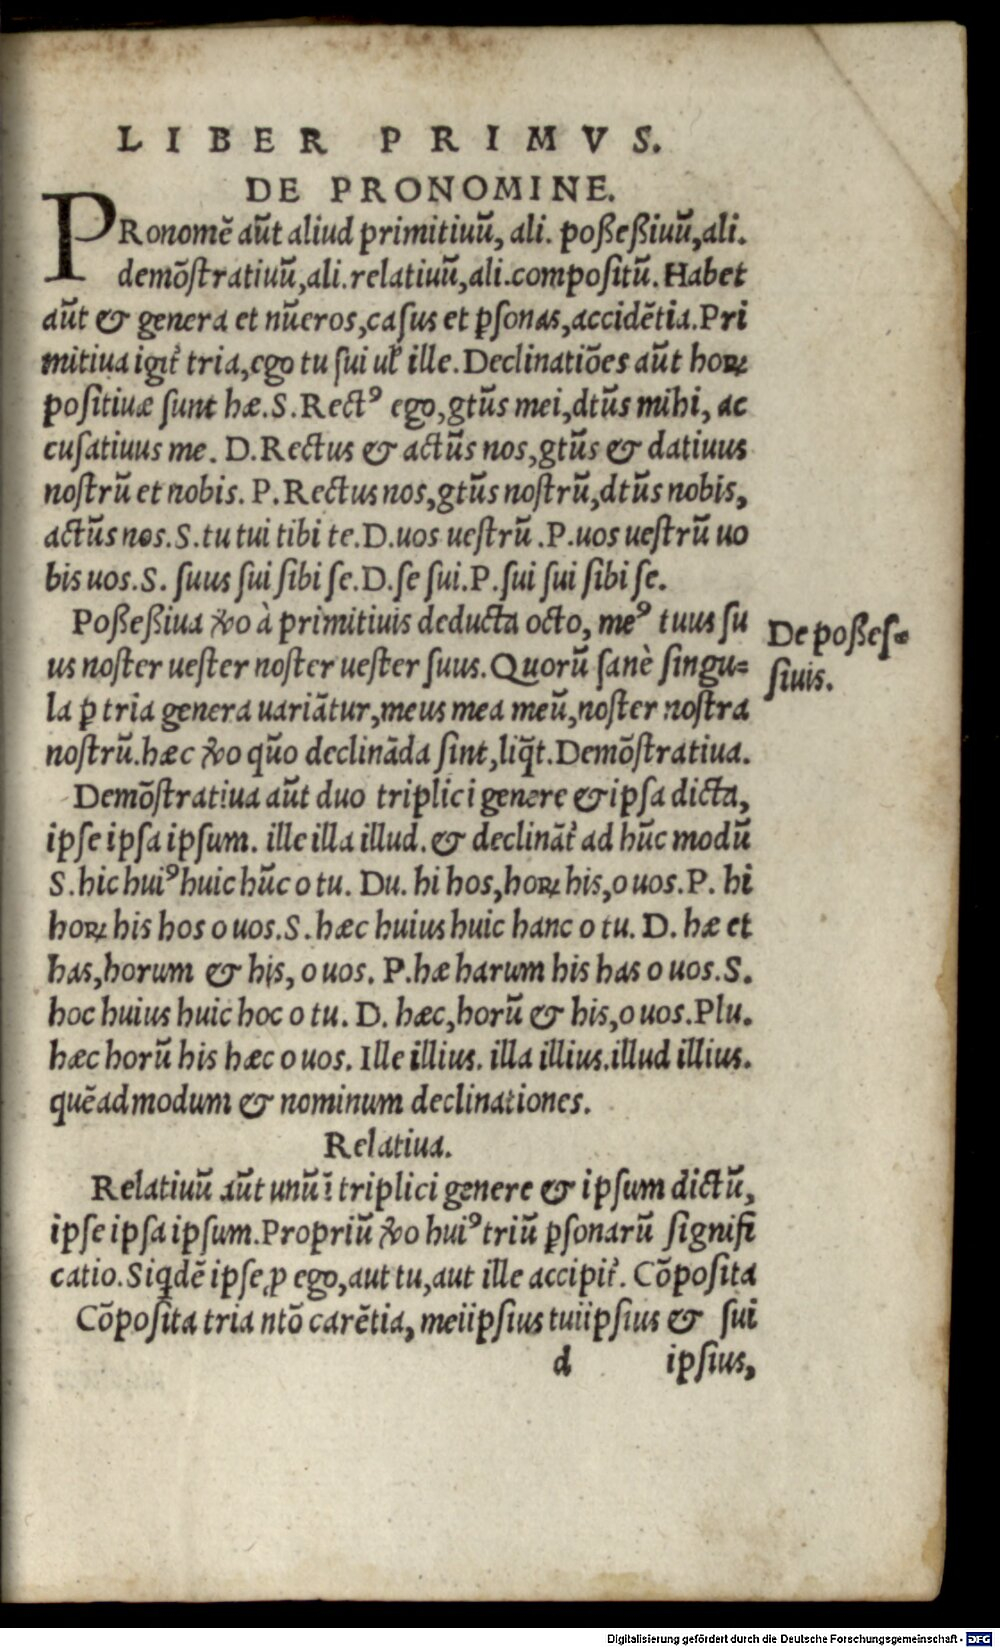 LIBER PRIMVS.
DE PRONOMINE.
PRonomē aūt aliud primitiuū, ali. poßeßiuū, ali.
demōſtratiuū, ali. relatiuū, ali. compoſitū. Habet
aūt & genera et nūeros, caſus et ꝑſonas, accidētia. Pri
mitiua igit᷑ tria, ego tu ſui ul᷑ ille. Declinatiōes aūt hoꝝ
poſitiuæ ſunt hæ. S. Rectꝰ ego, gtūs mei, dtūs mihi, ac
cuſatiuus me. D. Rectus & actūs nos, gtūs & datiuus
noſtrū et nobis. P. Rectus nos, gtūs noſtrū, dtūs nobis,
actūs nos. S. tu tui tibi te. D. uos ueſtrū. P. uos ueſtrū uo
bis uos. S. ſuus ſui ſibi ſe. D. ſe ſui. P. ſui ſui ſibi ſe.
Poßeßiua ꝟo à primitiuis deducta octo, meꝰ tuus ſu
us noſter ueſter noſter ueſter ſuus. Quorū ſanè ſingu=
la ꝑ tria genera uariātur, meus mea meū, noſter noſtra
noſtrū. hæc ꝟo quo̅ declināda ſint, liq̄t. Demōſtratiua.
De poßeſ=
ſiuis.
Demōſtratiua aūt duo triplici genere & ipſa dicta,
ipſe ipſa ipſum. ille illa illud. & declināt᷑ ad hūc modū
S. hic huiꝰ huic hūc o tu. Du. hi hos, hoꝝ his, o uos. P. hi
hoꝝ his hos o uos. S. hæc huius huic hanc o tu. D. hæ et
has, horum & his, o uos. P. hæ harum his has o uos. S.
hoc huius huic hoc o tu. D. hæc, horū & his, o uos. Plu.
hæc horū his hæc o uos. Ille illius. illa illius. illud illius.
quēadmodum & nominum declinationes.
Relatiua.
Relatiuū aūt unū ī triplici genere & ipſum dictū,
ipſe ipſa ipſum. Propriū ꝟo huiꝰ triū ꝑſonarū ſignifi
catio. Siqdē ipſe ꝓ ego, aut tu, aut ille accipit᷑. Cōpoſita
Cōpoſita tria ntō carētia, meiipſius tuiipſius & ſui
d ipſius,
Digitalisierung gefördert durch die Deutsche Forschungsgemeinschaft - DFG